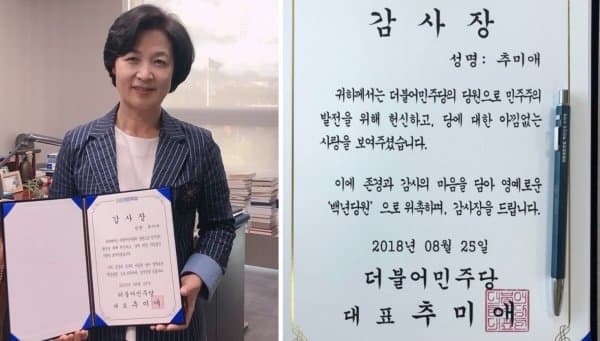 감사장
성명 : 추미애
감 사 장
성명 : 추미애
귀하께서는 더불어민주당의 당원으로 민주주의
발전을 위해 헌신하고, 당에 대한 아낌없는
사랑을 보여주셨습니다.
이에 존경과 감사의 마음을 담아 영예로운
'백년당원' 으로 위촉하며, 감사장을 드립니다.
2018년 08월 25일
더불어민주당
대 표 추 미 애